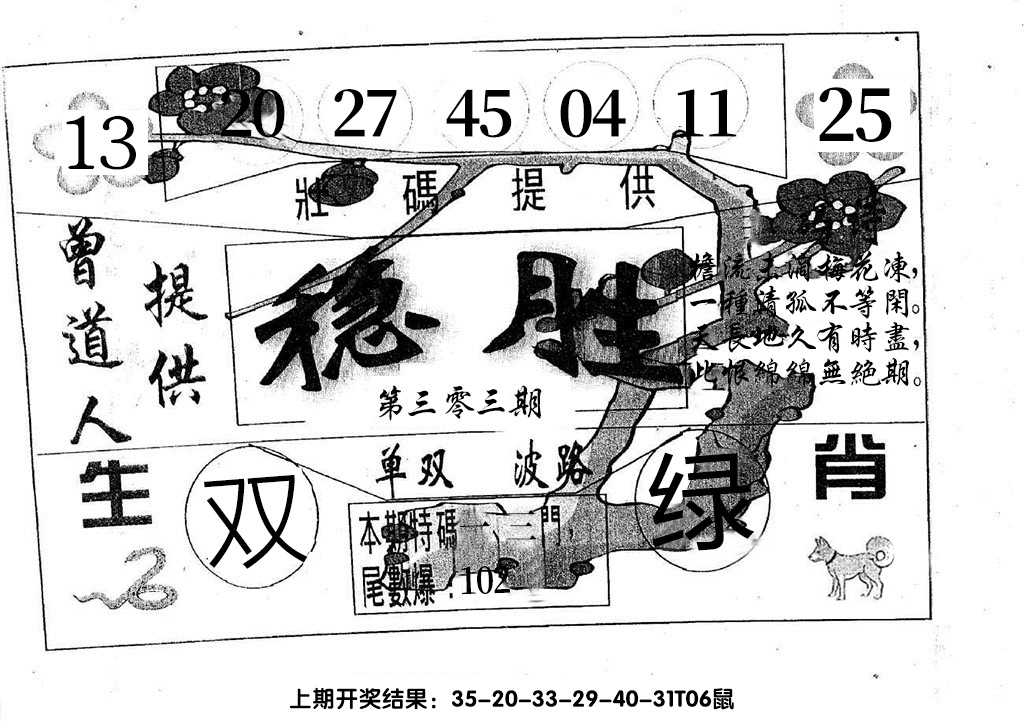 13 20 27 45 04 11 25
壯碼提供
曾道人
提供
稳胜
第三零三期
擔流土滴梅花凍，
一種請孤不等閑。
天長地久有時盡，
此恨綿綿無絶期。
单双 波路
生
双
绿
肖
本期特碼一、三門，
尾數爆：102
上期开奖结果：35-20-33-29-40-31T06鼠